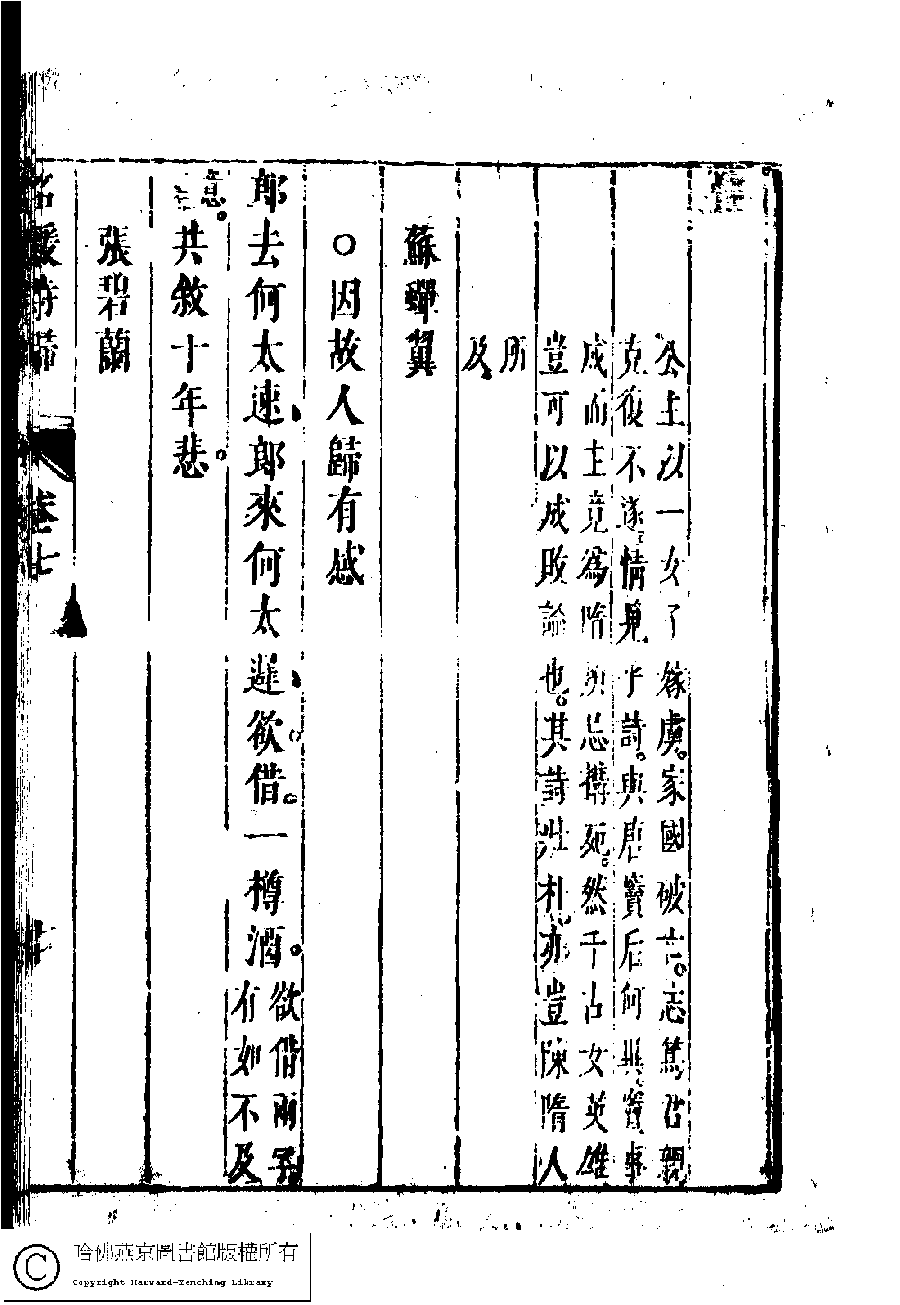 公主以一女子嫁虜。家國破亡。志篤君親
克復不遂情見乎詩。與唐竇后何異竇事
成而主竟爲隋所忌搆死。然千古女英雄
豈可以成敗論也。其詩壯朴亦豈陳隋人
所
及
蘇蟬翼
○因故人歸有感
郎去何太速郎來何太遲欲借。一樽酒。欲借兩字
有如不及
意。共敘十年悲。
張碧蘭
名媛詩歸
卷七
哈佛燕京圖書館版權所有
Copyright Harvard-Yenching Library